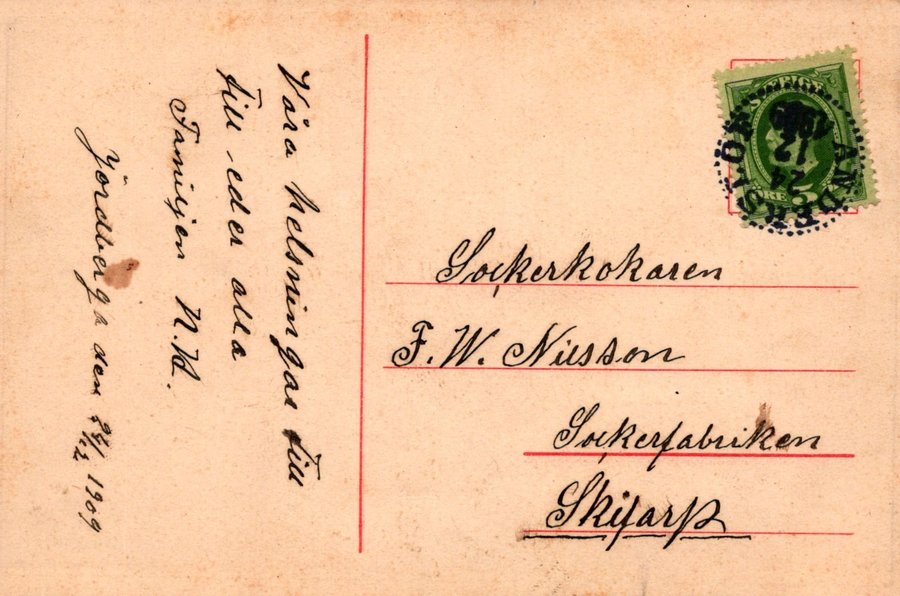 Våra helsningar till
till eder alla
Familjen N.H.
Jördberga den 24/12 1909
SVERIGE
ANDERSLÖF
24
12
1909
Sockerkokaren
F. W. Nilsson
Sockerfabriken
Skifarp